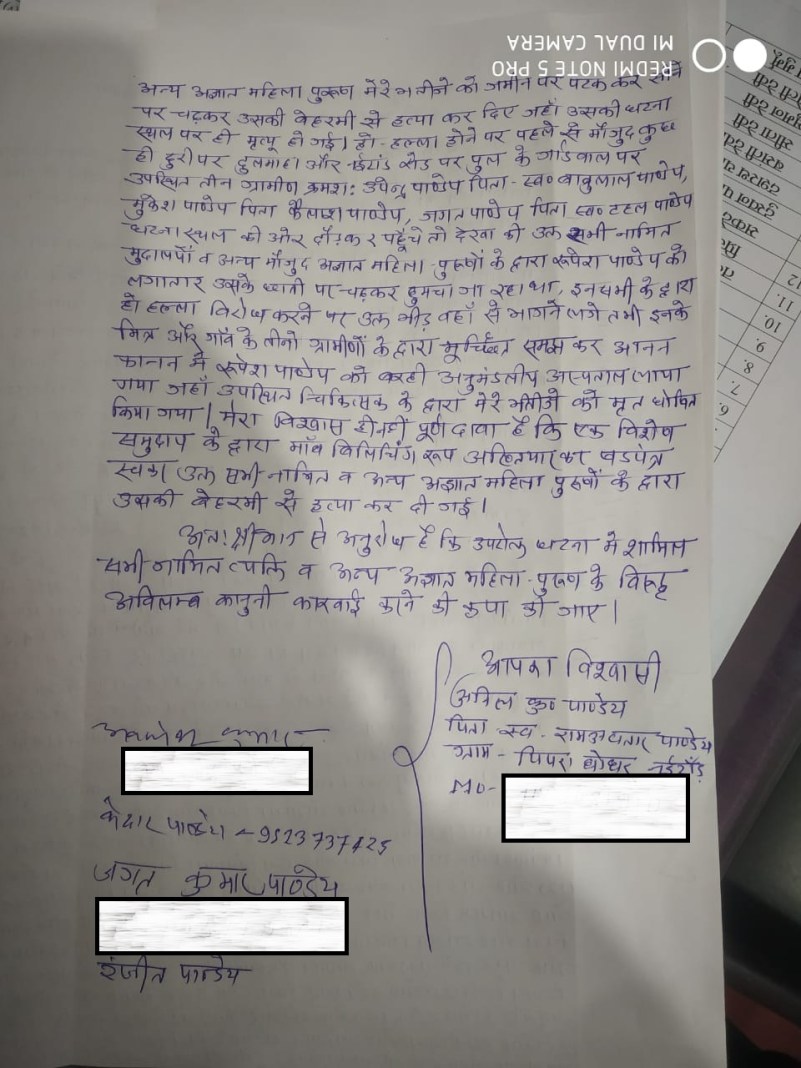 REDMI NOTE 5 PRO
MI DUAL CAMERA
अन्य अज्ञात महिला पुरूष मेरे भतीजे को जमीन पर पटक कर सीने
पर चढ़कर उसकी बेहरमी से हत्या कर दिए जहाँ उसकी घटना
स्थल पर ही मृत्यू हो गई। हो-हल्ला होने पर पहले से मौजुद कुछ
ही दुरी पर दुलमाहा और नईटांड रोड पर पुल के गार्डवाल पर
उपस्थित तीन ग्रामीण क्रमश: उपेन्द्र पाण्डेय पिता- स्व० बाबुलाल पाण्डेय,
मुकेश पाण्डेय पिता कैलाश पाण्डेय, जगत पाण्डेय पिता स्व० टहल पाण्डेय
घटना स्थल की ओर दौड़कर पहुँचे तो देखा की उक्त सभी नामित
मुदालयों व अन्य मौजुद अज्ञात महिला-पुरूषों के द्वारा रूपेश पाण्डेय को
लगातार उसके छाती पर चढ़कर हुमचा जा रहा था, इन सभी के द्वारा
हो हल्ला विरोध करने पर उक्त भीड़ वहाँ से भागने लगे तभी इनके
मित्र और गाँव के तीनो ग्रामीणों के द्वारा मूर्च्छित समझ कर आनन
फानन में रूपेश पाण्डेय को बरही अनुमंडलीय अस्पताल लाया
गया जहाँ उपस्थित चिकित्सक के द्वारा मेरे भतीजे को मृत घोषित
किया गया। मेरा विश्वास ही नही पूर्ण दावा है कि एक विशेष
समुदाय के द्वारा मॉब लिचिंग रूप अख्तियार कर षडयंत्र
उक्त सभी नामित व अन्य अज्ञात महिला पुरूषों के द्वारा
उसकी बेहरमी से हत्या कर दी गई।
अत: श्रीमान से अनुरोध है कि उपरोक्त घटना मे शामिल
सभी नामित व्यक्ति व अन्य अज्ञात महिला-पुरूष के विरूद्ध
अविलम्ब कानुनी कारवाई करने की कृपा की जाए।
आपका विश्वासी
अनिल कु० पाण्डेय
पिता स्व- रामअवतार पाण्डेय
ग्राम- पिपरा घोघर नईटाँड़
Mo-
कुमार
केदार पाण्डेय - 9523737425
जगत कुमार पाण्डेय
रंजीत पाण्डेय
12
11.
10.
9.
8.
7.
6.